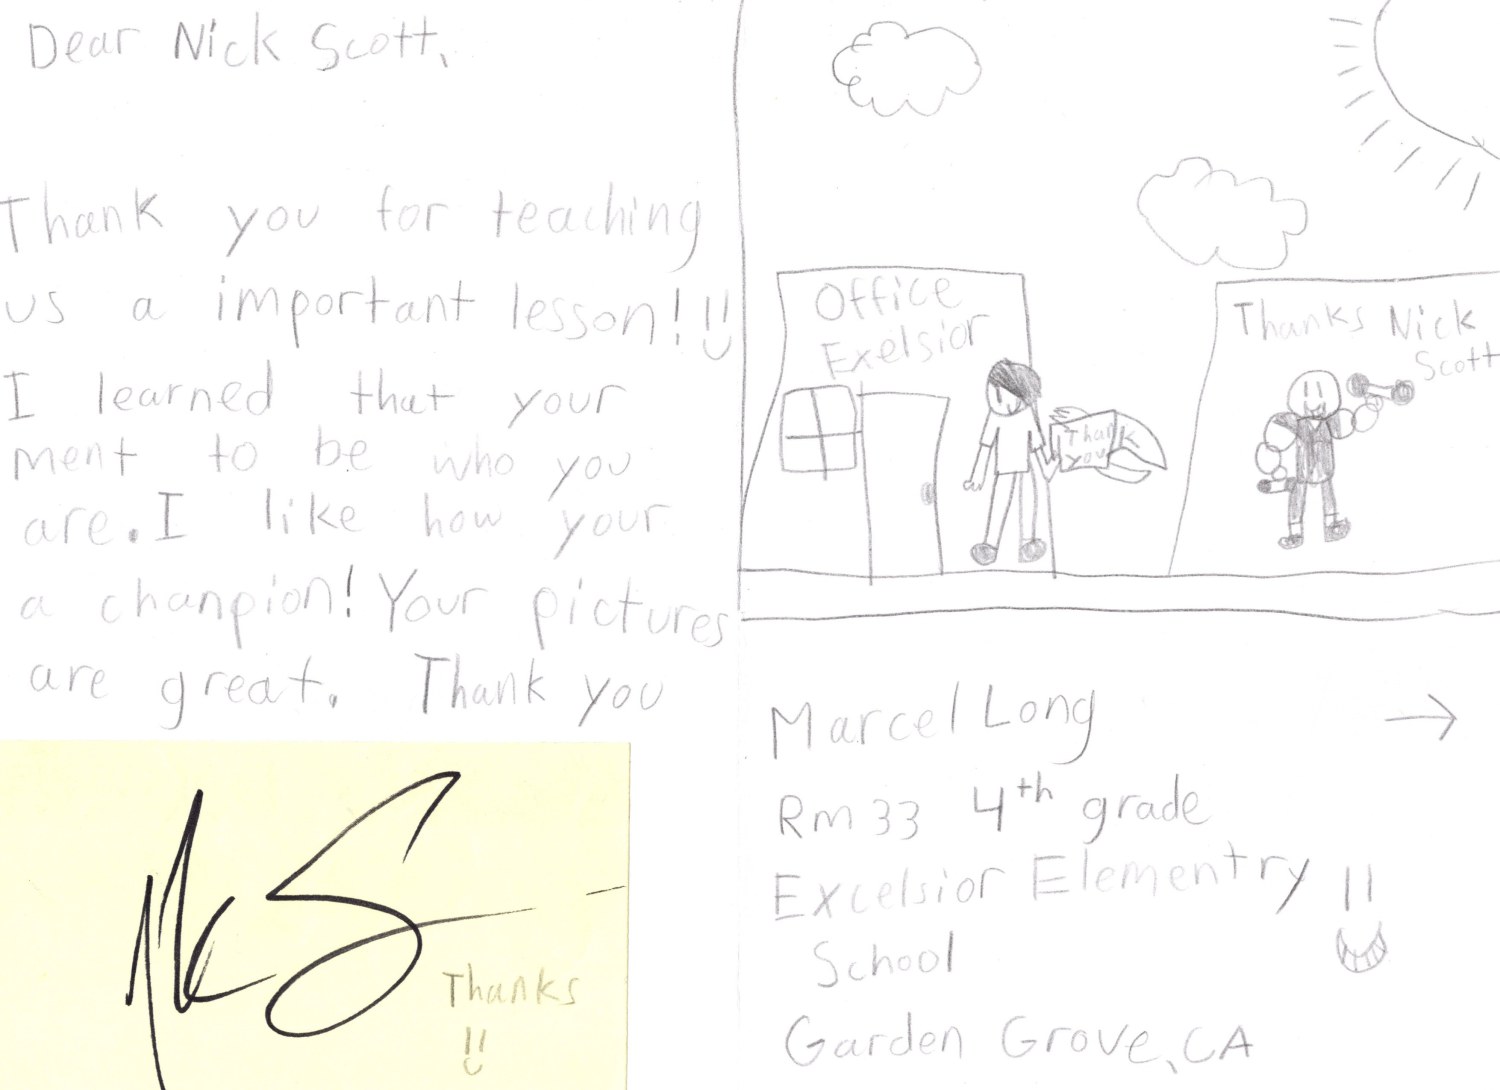 Dear Nick Scott,
Thank you for teaching
us a important lesson!
I learned that your
ment to be who you
are. I like how your
a chanpion! Your pictures
are great. Thank you
Thanks
Office
Exelsior
Thank
you
Thanks Nick
Scott
Marcel Long
Rm 33 4th grade
Excelsior Elementry
School
Garden Grove, CA